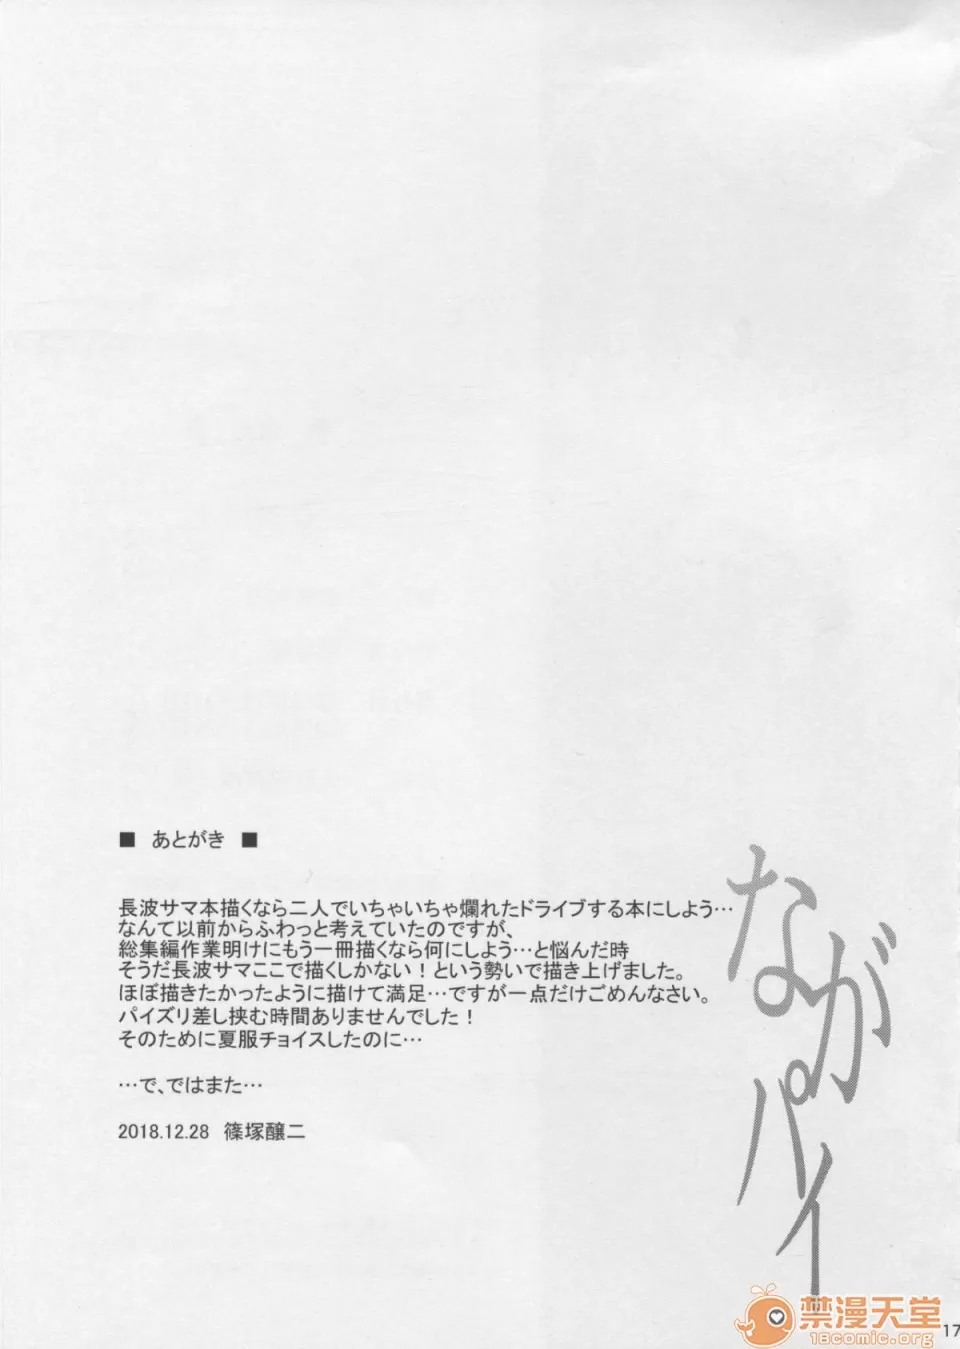 ■ あとがき ■
長波サマ本描くなら二人でいちゃいちゃ爛れたドライブする本にしよう…
なんて以前からふわっと考えていたのですが、
総集編作業明けにもう一冊描くなら何にしよう…と悩んだ時
そうだ長波サマここで描くしかない！という勢いで描き上げました。
ほぼ描きたかったように描けて満足…ですが一点だけごめんなさい。
パイズリ差し挟む時間ありませんでした！
そのために夏服チョイスしたのに…
…で、ではまた…
2018.12.28 篠塚醸二
ながパイ
禁漫天堂
18comic.org
17